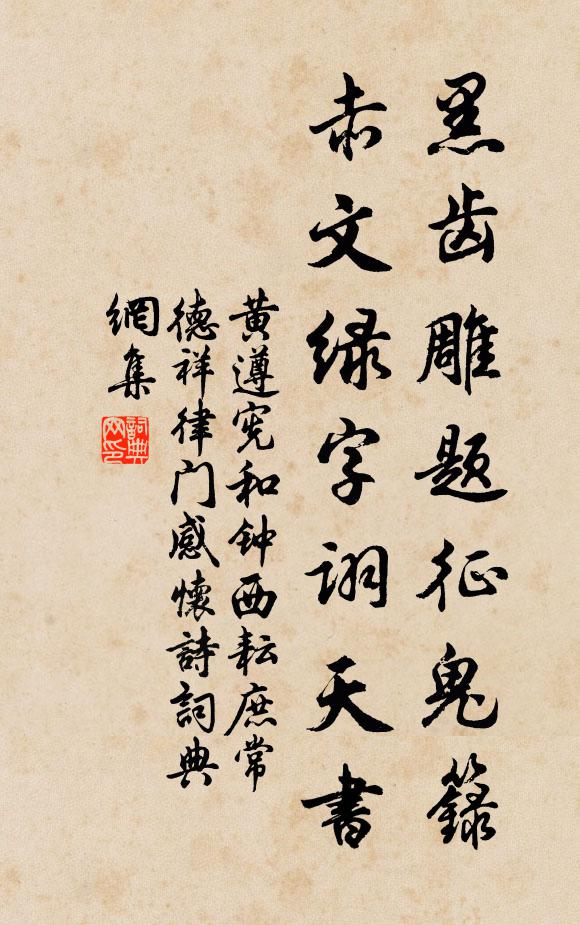 黑齿雕题征鬼籙
赤文绿字诩天書
黄遵宪和钟西耘庶常
德祥律门感懷詩詞典
網集
詞典
网印